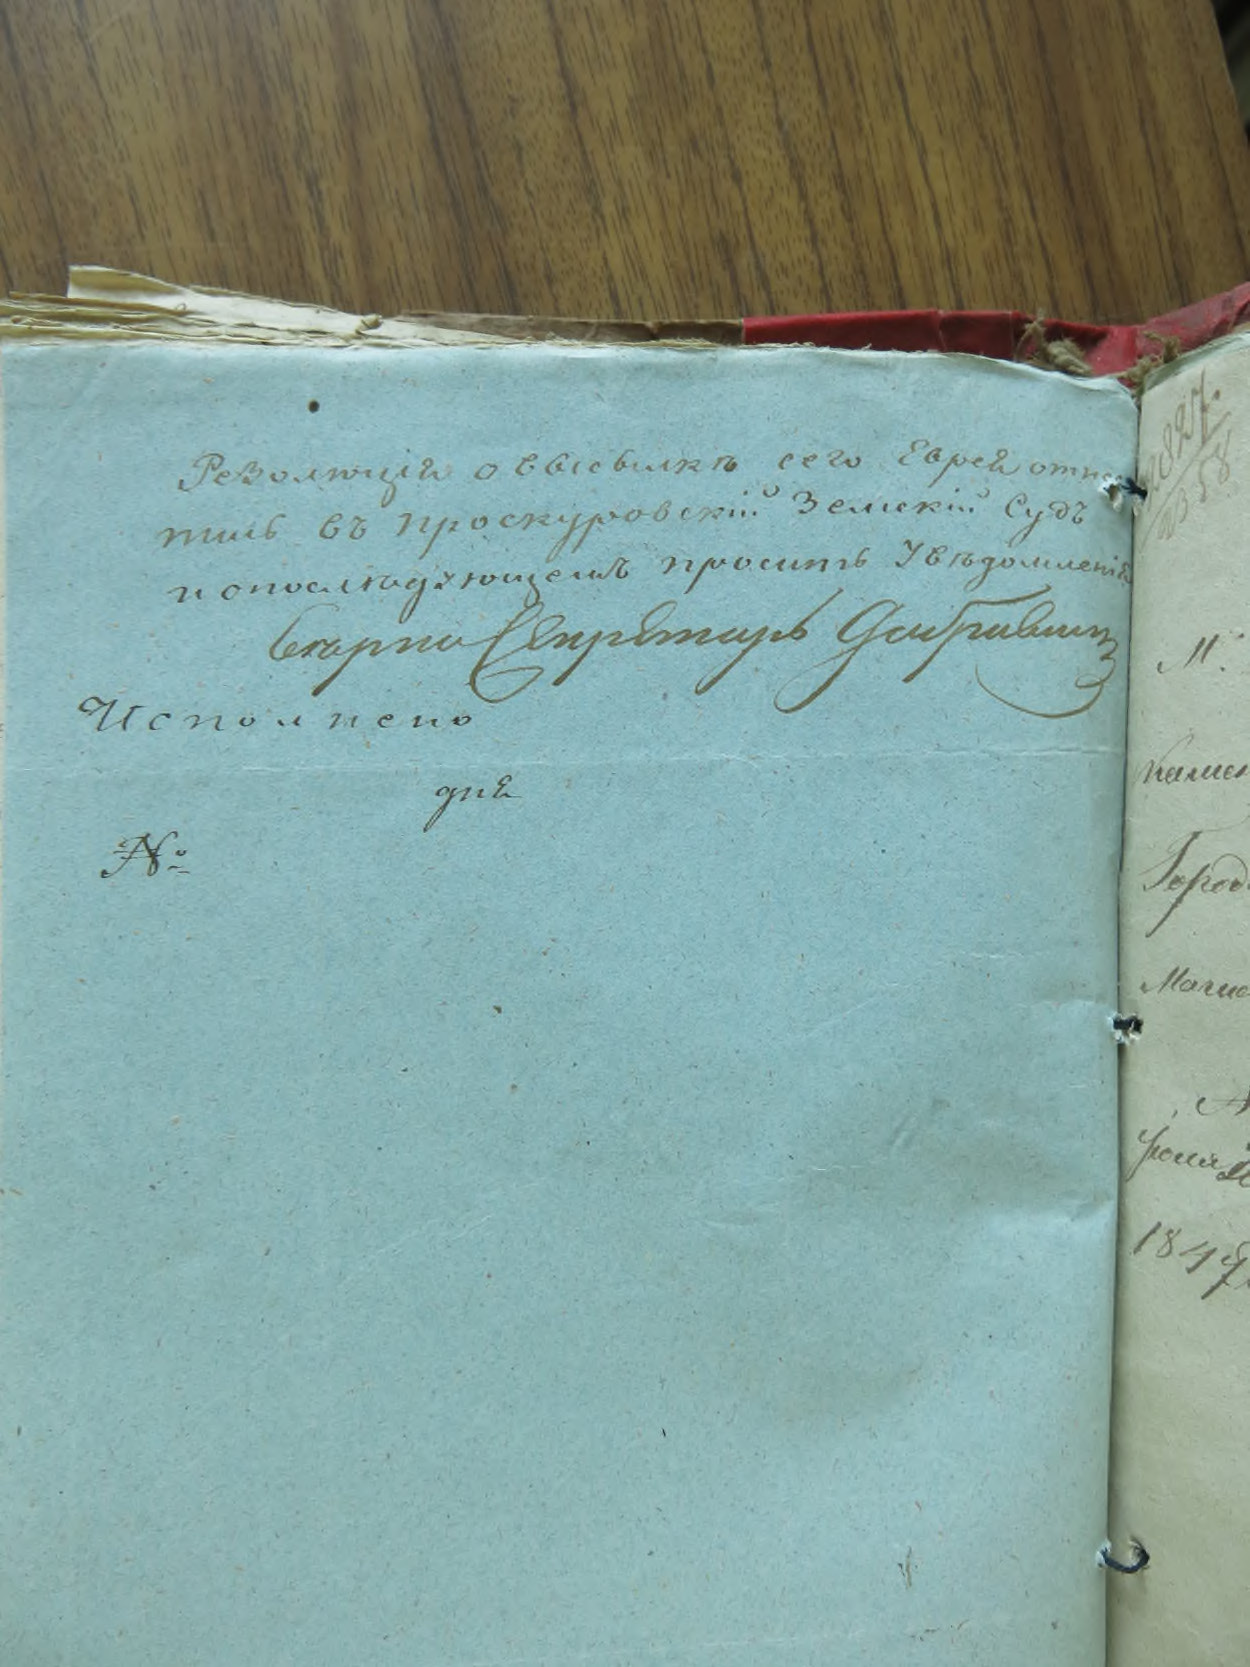 Резолюція о высылкѣ сего Еврея отне
тись въ Проскуровскій Земскій Судъ
и опослѣдующемъ просить Увѣдомленія
Секретарь
Исполнено
дня
№
М.
Камен
Город
Магис
1847